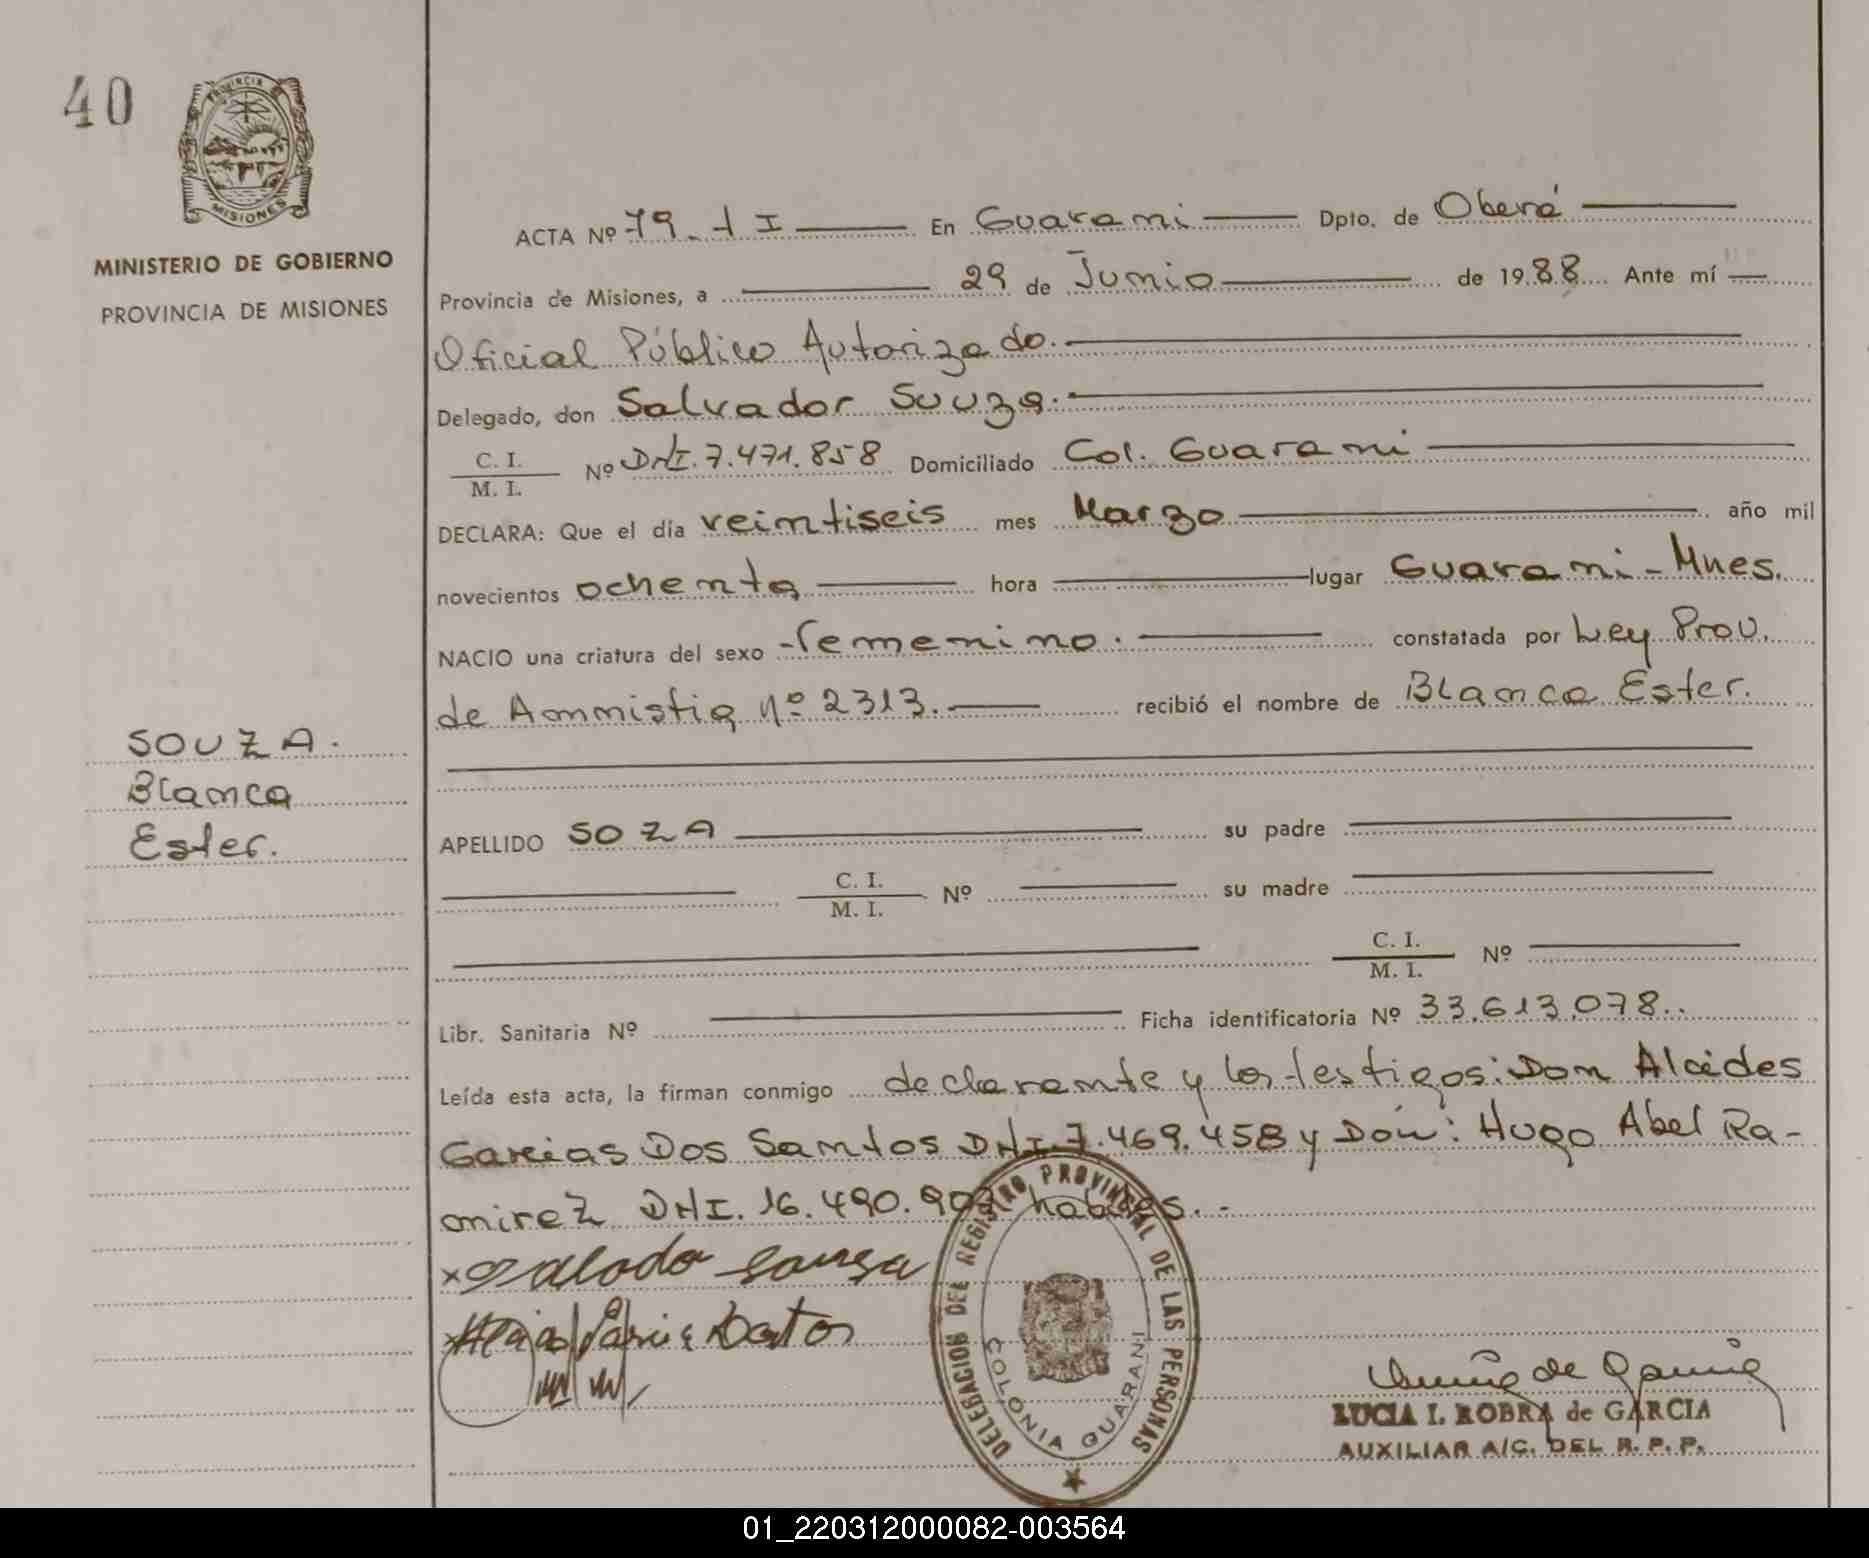 40
PROVINCIA
MISIONES
MINISTERIO DE GOBIERNO
PROVINCIA DE MISIONES
ACTA Nº 79. - I En Guarani Dpto. de Oberá
Provincia de Misiones, a 29 de Junio de 1988 Ante mí
Oficial Público Autorizado.
Delegado, don Salvador Souza.
C. I.
M. I.
Nº DNI. 7.471.858 Domiciliado Col. Guarani
DECLARA: Que el día veintiseis mes Marzo año mil
novecientos ochenta hora lugar Guarani - Mnes.
NACIO una criatura del sexo femenino. constatada por Ley Prov.
de Amnistia nº 2313. recibió el nombre de Blanca Ester.
SOUZA.
Blanca
Ester.
APELLIDO SOZA su padre
C. I.
M. I.
Nº su madre
C. I.
M. I.
Nº
Libr. Sanitaria Nº Ficha identificatoria Nº 33.613.078..
Leída esta acta, la firman conmigo declarante y los testigos: Don Alcides
Garcias Dos Santos DNI. 7.469.458 y Don: Hugo Abel Ra-
mirez DNI. 16.490.903 habiles. -
DELEGACION DEL REGISTRO PROVINCIAL DE LAS PERSONAS
COLONIA GUARANI
LUCIA I. ROBRA de GARCIA
AUXILIAR A/C. DEL R. P. P.
01_220312000082-003564